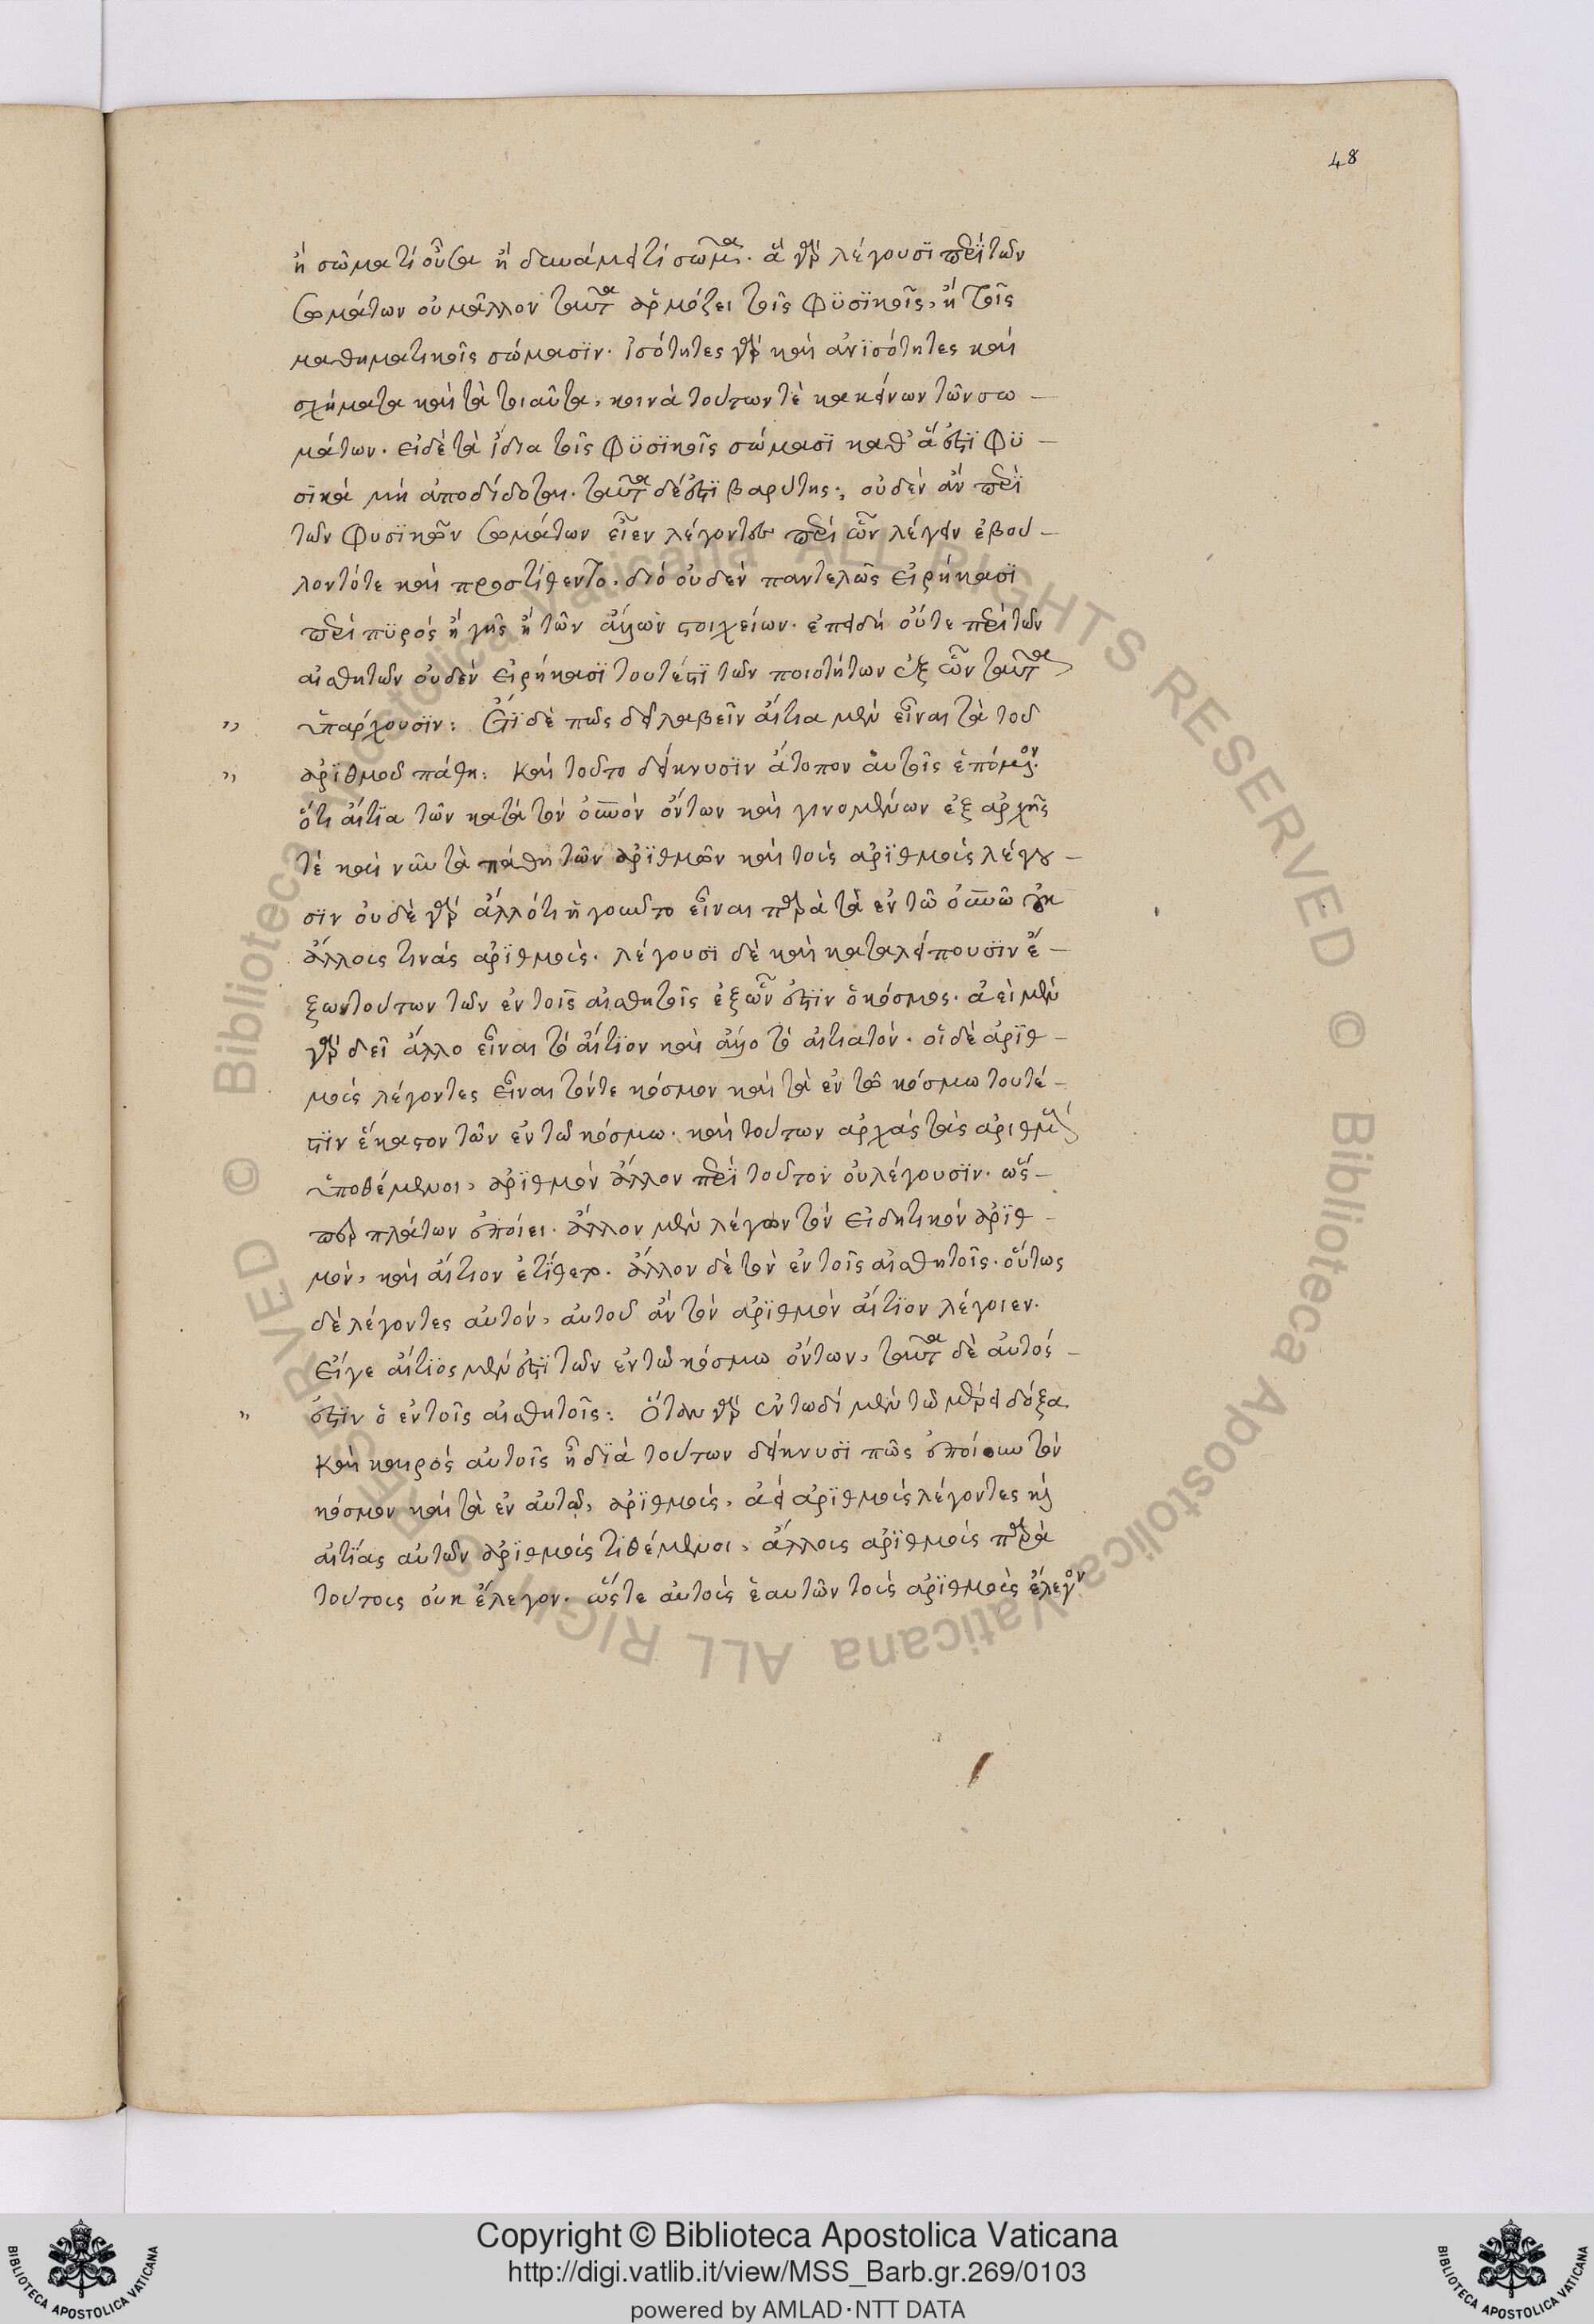 48
ἢ σώματι οὖσα ἢ δυνάμει τί σῶμα. ἃ γὰρ λέγουσϊ περὶ τῶν
σωμάτων οὐ μᾶλλον ταῦτα ἁρμόζει τοῖς φϋσϊκοῖς, ἢ τοῖς
μαθηματικοῖς σώμασϊν. ἰσότητες γὰρ καὶ ἀνϊσότητες καὶ
σχήματα καὶ τὰ τοιαῦτα, κοινὰ τούτων τὲ κακείνων τῶν σω-
μάτων. εἰ δὲ τὰ ἴδια τοῖς φϋσϊκοῖς σώμασϊ καθ' ἅ ἐστϊ φϋ-
σϊκά μὴ ἀποδίδοται. ταῦτα δέ ἐστϊ βαρύτης, οὐδὲν ἂν περὶ
τῶν φυσϊκῶν σωμάτων εἶεν λέγοντες περὶ ὧν λέγειν ἐβού-
λοντό τε καὶ προστίθεντο. διό οὐδὲν παντελῶς εἰρήκασϊ
περὶ πϋρός ἢ γῆς ἢ τῶν ἄλλων στοιχείων. ἐπειδή οὔτε περὶ τῶν
αἰσθητῶν οὐδὲν εἰρήκασϊ τουτέστϊ τῶν ποιοτήτων ἐξ ὧν ταῦτα
,, ὑπάρχουσϊν: Ἔτϊ δὲ πῶς δεῖ λαβεῖν αἴτια μὲν εἶναι τὰ τοῦ
,, ἀρϊθμοῦ πάθη: Καὶ τοῦτο δείκνυσϊν ἄτοπον αὐτοῖς ἑπόμενον.
ὅτι αἴτϊα τῶν κατὰ τὸν οὐνὸν ὄντων καὶ γινομένων ἐξ ἀρχῆς
τέ καὶ νῦν τὰ πάθη τῶν ἀρϊθμῶν καὶ τοὺς ἀρϊθμοὺς λέγου-
σϊν οὐδὲ γὰρ ἄλλό τι ἡγοῦντο εἶναι παρὰ τὰ ἐν τῶ οὐνῶ οὐκ
ἄλλους τινάς ἀρϊθμούς. λέγουσϊ δὲ καὶ καταλείπουσϊν ἔ-
ξω τούτων τῶν ἐν τοῖς αἰσθητοῖς ἐξ ὧν ἐστϊν ὁ κόσμος. ἀεὶ μὲν
γὰρ δεῖ ἄλλο εἶναι τὸ αἴτϊον καὶ ἄλλο τὸ αἰτιατόν. οἱ δὲ ἀρϊθ-
μοὺς λέγοντες εἶναι τόν τε κόσμον καὶ τὰ ἐν τῶ κόσμω τουτέ-
στϊν ἕκαστον τῶν ἐν τῶ κόσμω. καὶ τούτων ἀρχὰς τοὺς ἀριθμοὺς
ὑποθέμενοι, ἀρϊθμὸν ἄλλον περὶ τοῦτον οὐ λέγουσϊν. ὥς-
περ πλάτων ἐποίει. ἄλλον μὲν λέγων τὸν εἰδητικὸν ἀρϊθ-
μόν, καὶ αἴτιον ἐτίθετο. ἄλλον δὲ τὸν ἐν τοῖς αἰσθητοῖς. οὕτως
δὲ λέγοντες αὐτόν, αὐτοῦ ἂν τὸν ἀρϊθμὸν αἴτϊον λέγοιεν.
Εἴγε αἴτϊος μέν ἐστϊ τῶν ἐν τῶ κόσμω ὄντων, ταῦτα δὲ αὐτός-
,, ἐστϊν ὁ ἐν τοῖς αἰσθητοῖς: Ὅταν γὰρ ἐν τωδί μὲν τῶ μέρει δόξα
Καὶ καιρός αὐτοῖς ἢ δϊὰ τούτων δείκνυσϊ πῶς ἐποίουν τὸν
κόσμον καὶ τὰ ἐν αὐτῶ, ἀρϊθμούς, ἀεὶ ἀρϊθμοὺς λέγοντες καὶ
αἰτίας αὐτῶν ἀρϊθμοὺς τϊθέμενοι, ἄλλους ἀρϊθμοὺς παρὰ
τούτους οὐκ ἔλεγον. ὥςτε αὐτοὺς ἑαυτῶν τοὺς ἀρϊθμοὺς ἔλεγον
Copyright © Biblioteca Apostolica Vaticana
http://digi.vatlib.it/view/MSS_Barb.gr.269/0103
powered by AMLAD·NTT DATA